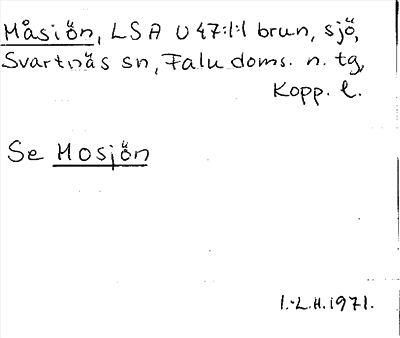 Måsjön, LSA U 47:1:1 brun, sjö,
Svartnäs sn, Falu doms. n. tg,
Kopp. l.
Se Mosjön
I.-L.H. 1971.